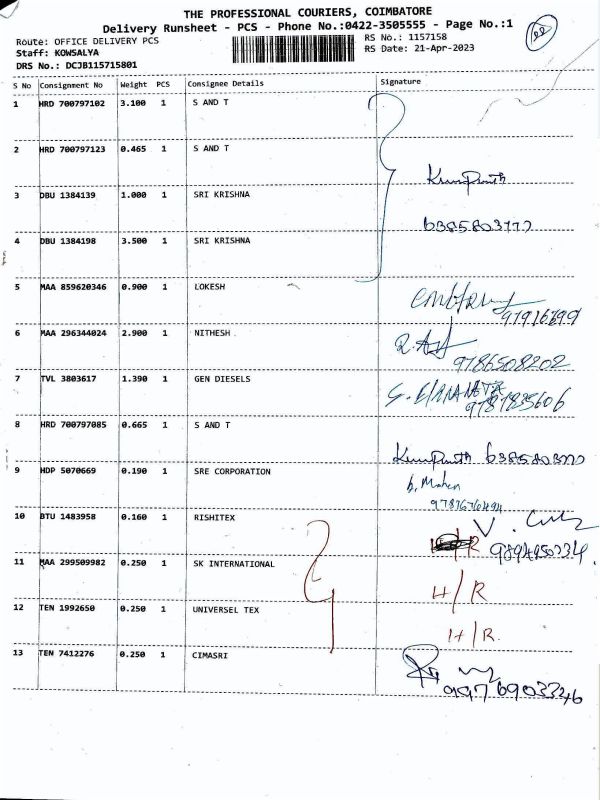 THE PROFESSIONAL COURIERS, COIMBATORE
Delivery Runsheet - PCS - Phone No.:0422-3505555 - Page No.:1
Route: OFFICE DELIVERY PCS
RS No.: 1157158
Staff: KOWSALYA
RS Date: 21-Apr-2023
DRS No.: DCJB115715801
S No Consignment No Weight PCS Consignee Details Signature
1 HRD 700797102 3.100 1 S AND T
2 HRD 700797123 0.465 1 S AND T
3 DBU 1384139 1.000 1 SRI KRISHNA
6385803777
4 DBU 1384198 3.500 1 SRI KRISHNA
5 MAA 859620346 0.900 1 LOKESH
6 MAA 296344024 2.900 1 NITHESH
9786508202
7 TVL 3803617 1.390 1 GEN DIESELS
8 HRD 700797085 0.665 1 S AND T
9 HDP 5070669 0.190 1 SRE CORPORATION
10 BTU 1483958 0.160 1 RISHITEX
11 MAA 299509982 0.250 1 SK INTERNATIONAL
H/R
12 TEN 1992650 0.250 1 UNIVERSEL TEX
H/R
13 TEN 7412276 0.250 1 CIMASRI
9976903346